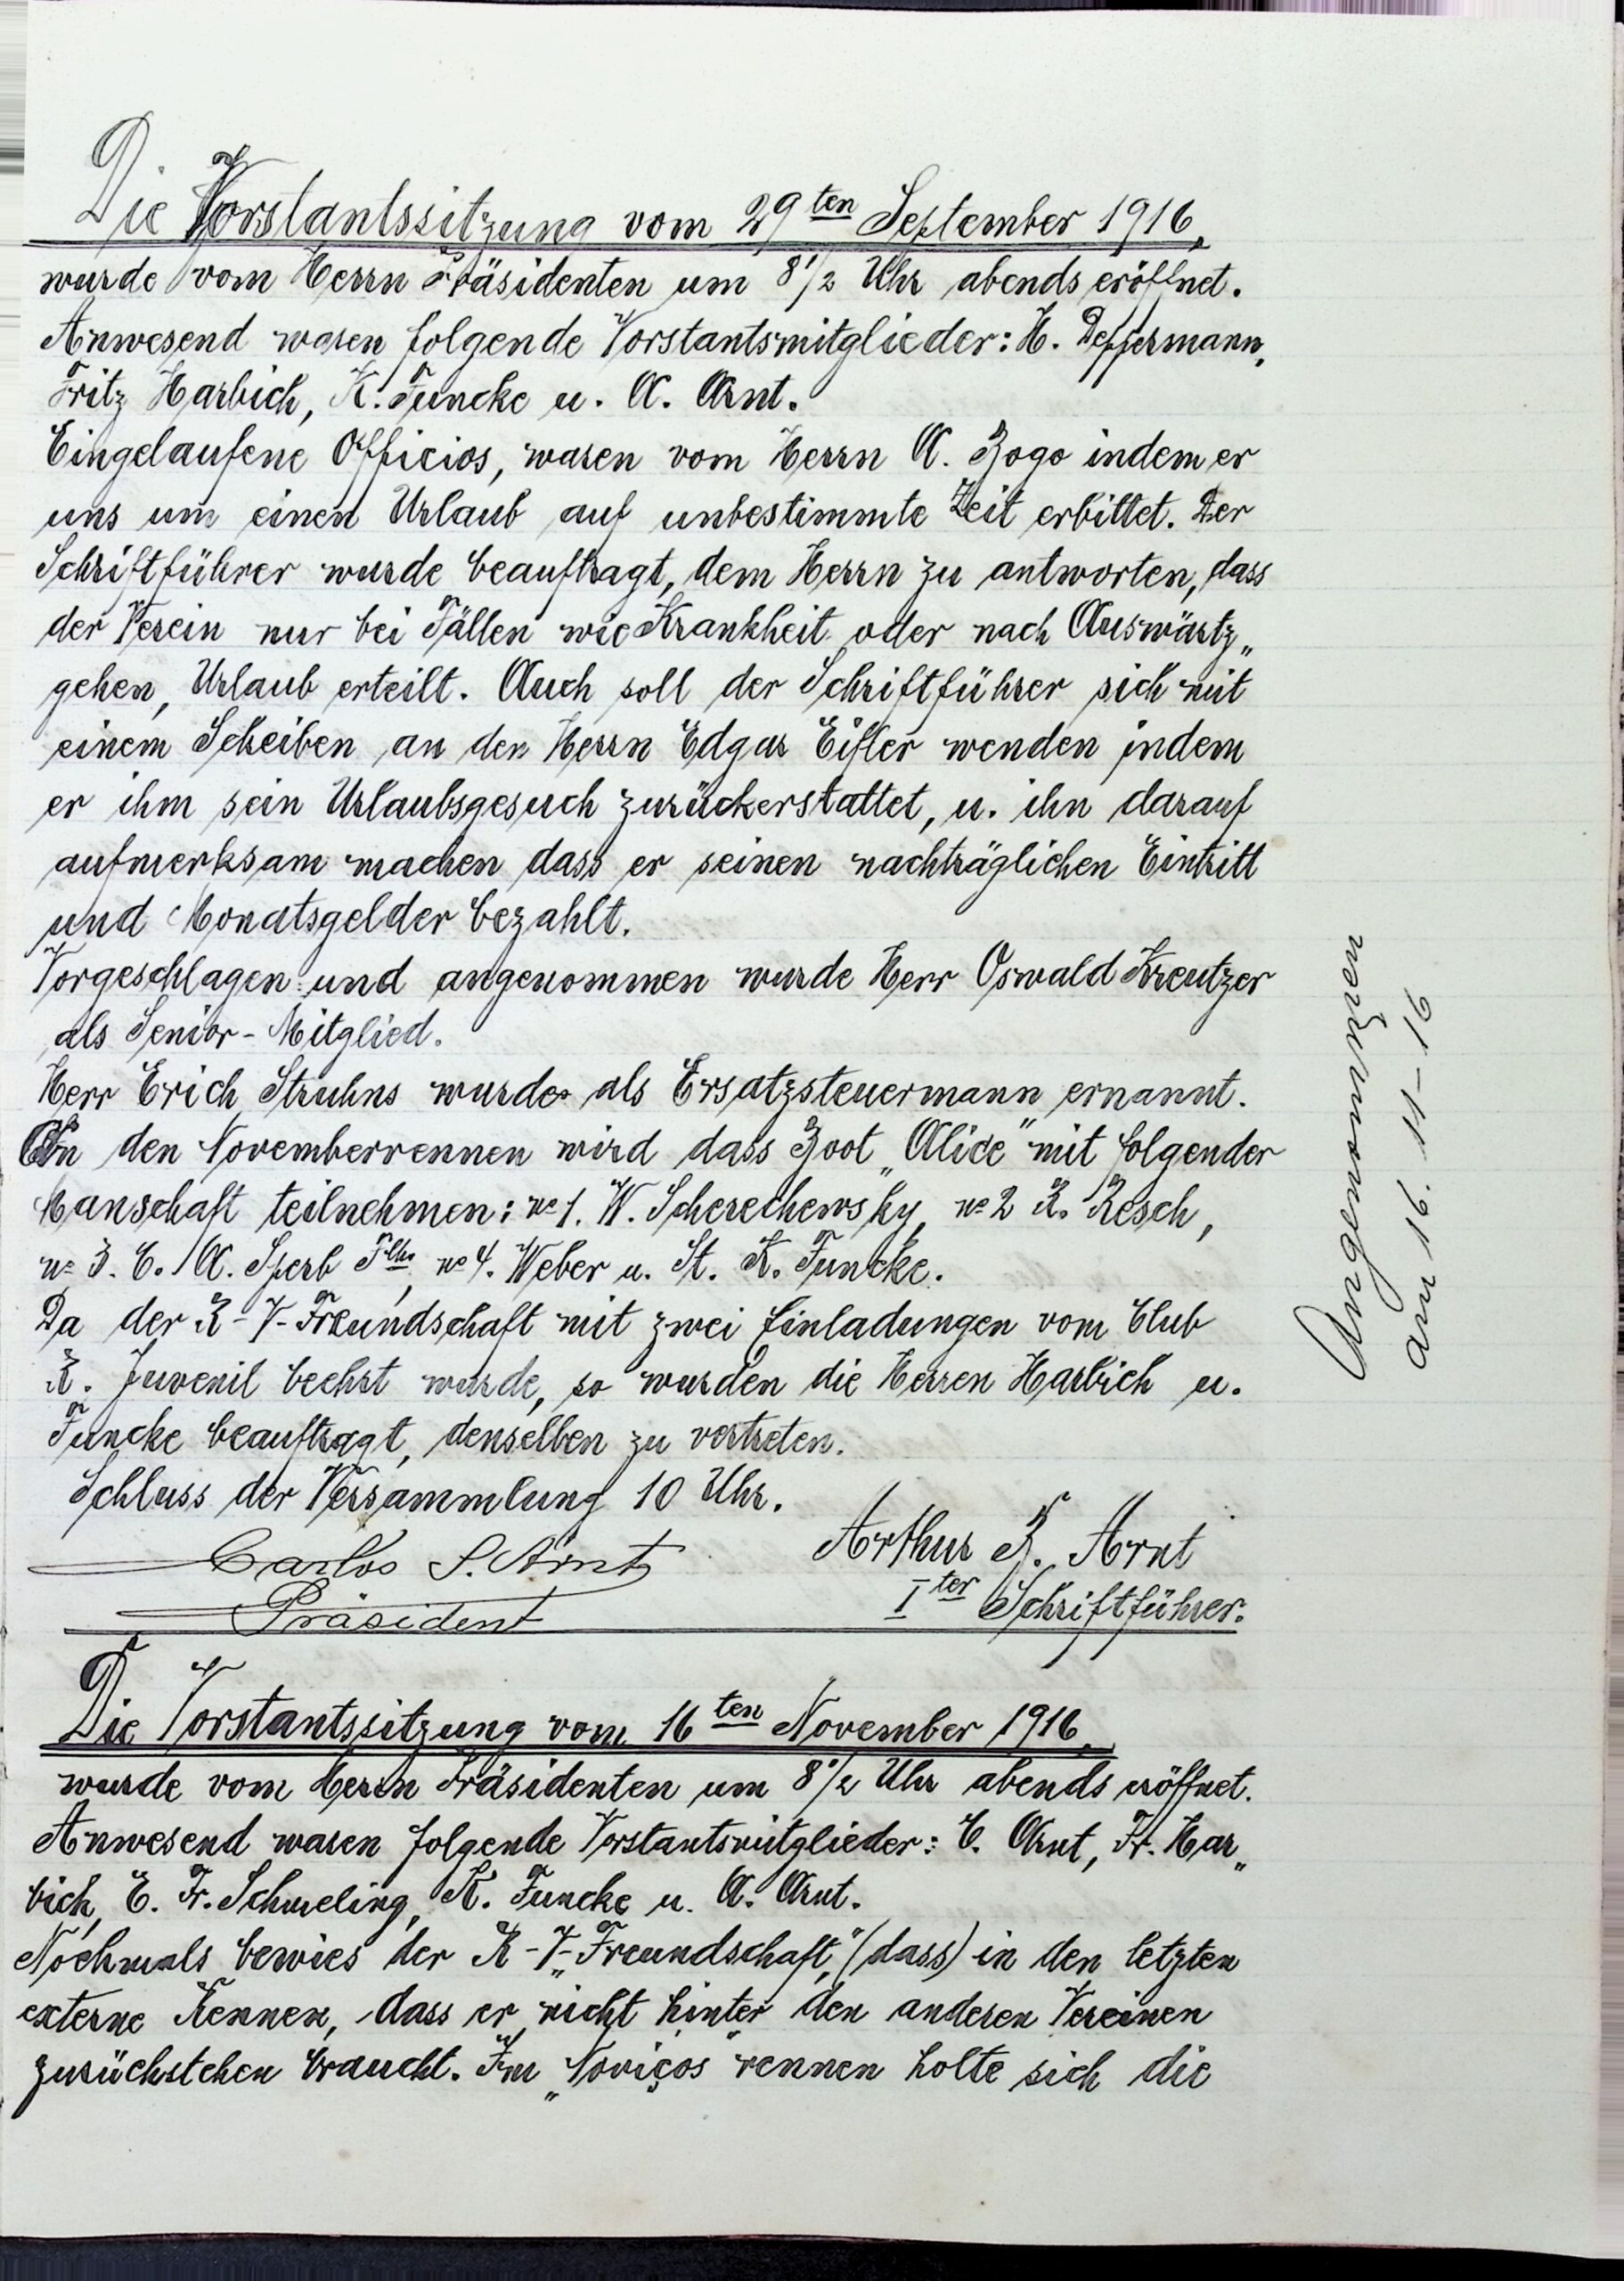 Die Vorstantssitzung vom 29ten September 1916,
wurde vom Herrn Präsidenten um 8 1/2 Uhr abends eröffnet.
Anwesend waren folgende Vorstantsmitglieder: H. Deppermann,
Fritz Harbich, K. Funcke u. A. Arnt.
Eingelaufene Officios, waren vom Herrn A. Bogo indem er
uns um einen Urlaub auf unbestimmte Zeit erbittet. Der
Schriftführer wurde beauftragt, dem Herrn zu antworten, dass
der Verein nur bei Fällen wie Krankheit oder nach Auswärtz„
gehen, Urlaub erteilt. Auch soll der Schriftführer sich mit
einem Scheiben an den Herrn Edgar Eifler wenden indem
er ihm sein Urlaubsgesuch zurückerstattet, u. ihn darauf
aufmerksam machen dass er seinen nachträglichen Eintritt
und Monatsgelder bezahlt.
Vorgeschlagen und angenommen wurde Herr Oswald Kreutzer
als Senior-Mitglied.
Herr Erich Struhns wurde als Ersatzsteuermann ernannt.
An den Novemberrennen wird dass Boot „Alice" mit folgender
Manschaft teilnehmen: no 1. W. Scherechewsky, no 2 R. Resch,
no 3. C. A. Sperb Flho, no 4. Weber u. St. K. Funcke.
Da der R-V-Freundschaft mit zwei Einladungen vom Club
R. Juvenil beehrt wurde, so wurden die Herren Harbich u.
Funcke beauftragt, denselben zu vertreten.
Schluss der Versammlung 10 Uhr.
Carlos S. Arnt
Präsident
Arthur B. Arnt
Iter Schriftführer.
Angenommen
am 16. 11-16
Die Vorstantssitzung vom 16ten November 1916.
wurde vom Herrn Präsidenten um 8 1/2 Uhr abends eröffnet.
Anwesend waren folgende Vorstantsmitglieder: C. Arnt, Fr. Har„
bich, E. Fr. Schmeling, K. Funcke u. A. Arnt.
Nochmals bewies der R-V-„Freundschaft," (dass) in den letzten
externe Rennen, dass er nicht hinter den anderen Vereinen
zurückstehen braucht. Im „Noviços" rennen holte sich die